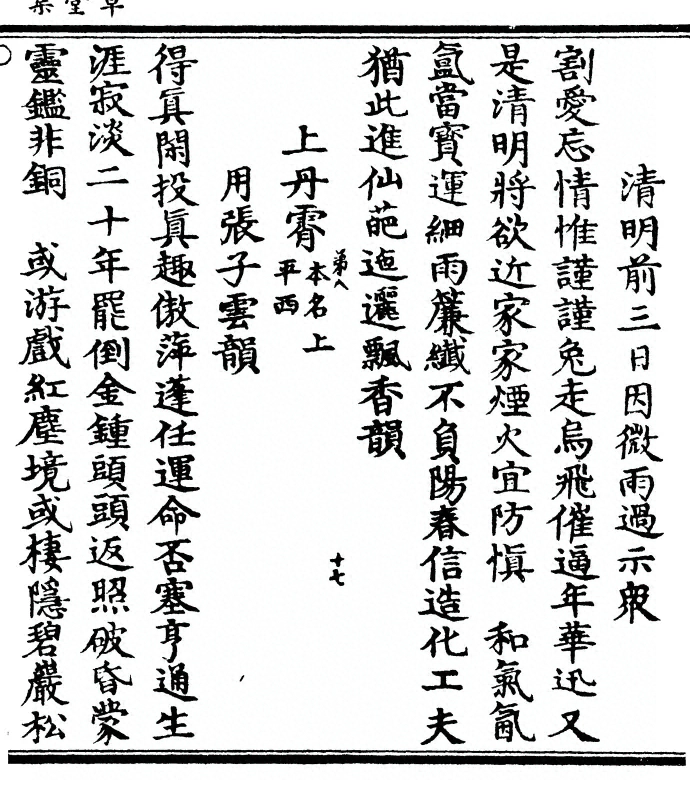 草堂集
清明前三日因微雨過示衆
割愛忘情惟謹謹兔走烏飛催逼年華迅又
是清明將欲近家家煙火宜防愼　和氣氤
氳當寶運細雨簾纖不負陽春信造化工夫
猶此進仙葩迤邐飄香韻
上丹霄本名上平西
第八
十七
用張子雲韻
得眞閑投眞趣傲萍蓬任運命否塞亨通生
涯寂淡二十年罷倒金鍾頭頭返照破昏蒙
靈鑑非銅　或游戲紅塵境或棲隱碧巖松